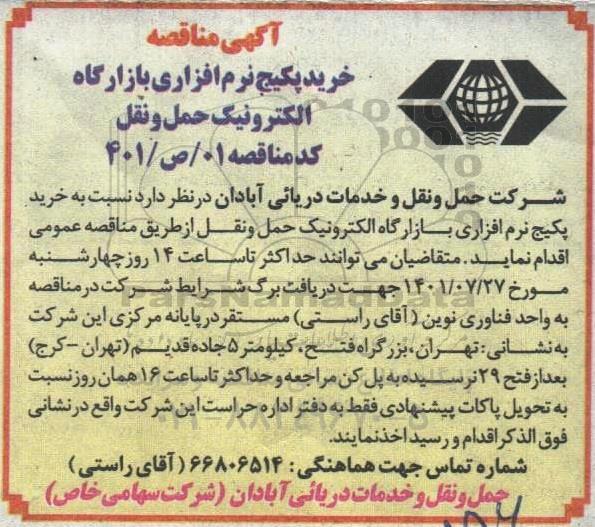 آگهی مناقصه
خرید پکیج نرم افزاری بازارگاه
الکترونیک حمل و نقل
کد مناقصه ۰۱/ص/۴۰۱
شرکت حمل ونقل و خدمات دریائی آبادان درنظر دارد نسبت به خرید
پکیج نرم افزاری بازارگاه الکترونیک حمل ونقل ازطریق مناقصه عمومی
اقدام نماید. متقاضیان می توانند حداکثر تاساعت ۱۴ روزچهارشنبه
مورخ ۱۴۰۱/۰۷/۲۷ جهت دریافت برگ شرایط شرکت درمناقصه
به واحد فناوری نوین (آقای راستی) مستقردرپایانه مرکزی این شرکت
به نشانی: تهران، بزرگراه فتح، کیلومتر ۵ جاده قدیم (تهران -کرج)
بعداز فتح ۲۹ نرسیده به پل کن مراجعه و حداکثر تاساعت ۱۶ همان روز نسبت
به تحویل پاکات پیشنهادی فقط به دفتر اداره حراست این شرکت واقع در نشانی
فوق الذکر اقدام و رسید اخذنمایند.
شماره تماس جهت هماهنگی: ۶۶۸۰۶۵۱۴ (آقای راستی)
حمل ونقل و خدمات دریائی آبادان (شرکت سهامی خاص)
ParsNamadData